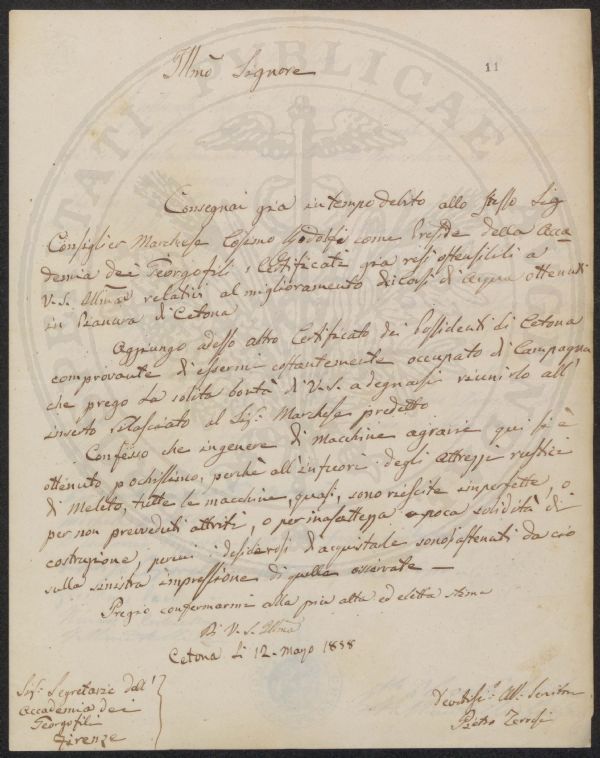 11
Illmo Signore
Consegnai già in tempo debito allo stesso Sig
Consiglier Marchese Cosimo Ridolfi come Preside della Acca
demia dei Georgofili i Certificati già resi ostensibili a
V. S. Illma relativi al miglioramento dei corsi di acqua ottenuti
in Pianura di Cetona
Aggiungo adesso altro Certificato dei Possidenti di Cetona
comprovante di essermi costantemente occupato di Campagna
che prego la solita bontà di V. S. a degnarsi riunirlo all'
inserto rilasciato al Sig. Marchese predetto
Confesso che in genere di macchine agrarie qui si è
ottenuto pochissimo, perchè all'infuori degli attrezzi rustici
di Meleto, tutte le macchine, quasi, sono riescite imperfette, o
per non preveduti attriti, o per inesattezza e poca solidità di
costruzione, perciò i desiderosi d'acquistale sono astenuti da ciò
sulla sinistra impressione di quelle osservate —
Pregio confermarmi alla più alta ed eletta stima
Di V. S. Illma
Cetona li 12. Maggio 1858
Sig. Segretario dell'
Accademia dei
Georgofili
Firenze
Devotis. Obb. Servitore
Pietro
PUBLICAE